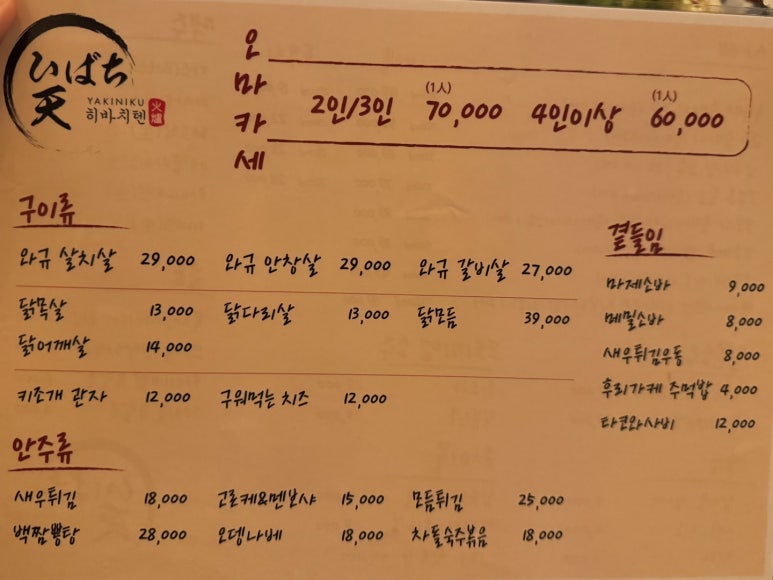 ひばち
天
YAKINIKU
히바치텐
火爐
오마카세
2인/3인 (1人) 70,000 4인이상 (1人) 60,000
구이류
와규 살치살 29,000 와규 안창살 29,000 와규 갈비살 27,000
닭목살 13,000 닭다리살 13,000 닭모듬 39,000
닭어깨살 14,000
키조개 관자 12,000 구워먹는 치즈 12,000
곁들임
마제소바 9,000
메밀소바 8,000
새우튀김우동 8,000
후리가케 주먹밥 4,000
타코와사비 12,000
안주류
새우튀김 18,000 고로케&멘보샤 15,000 모듬튀김 25,000
백짬뽕탕 28,000 오뎅나베 18,000 차돌숙주볶음 18,000